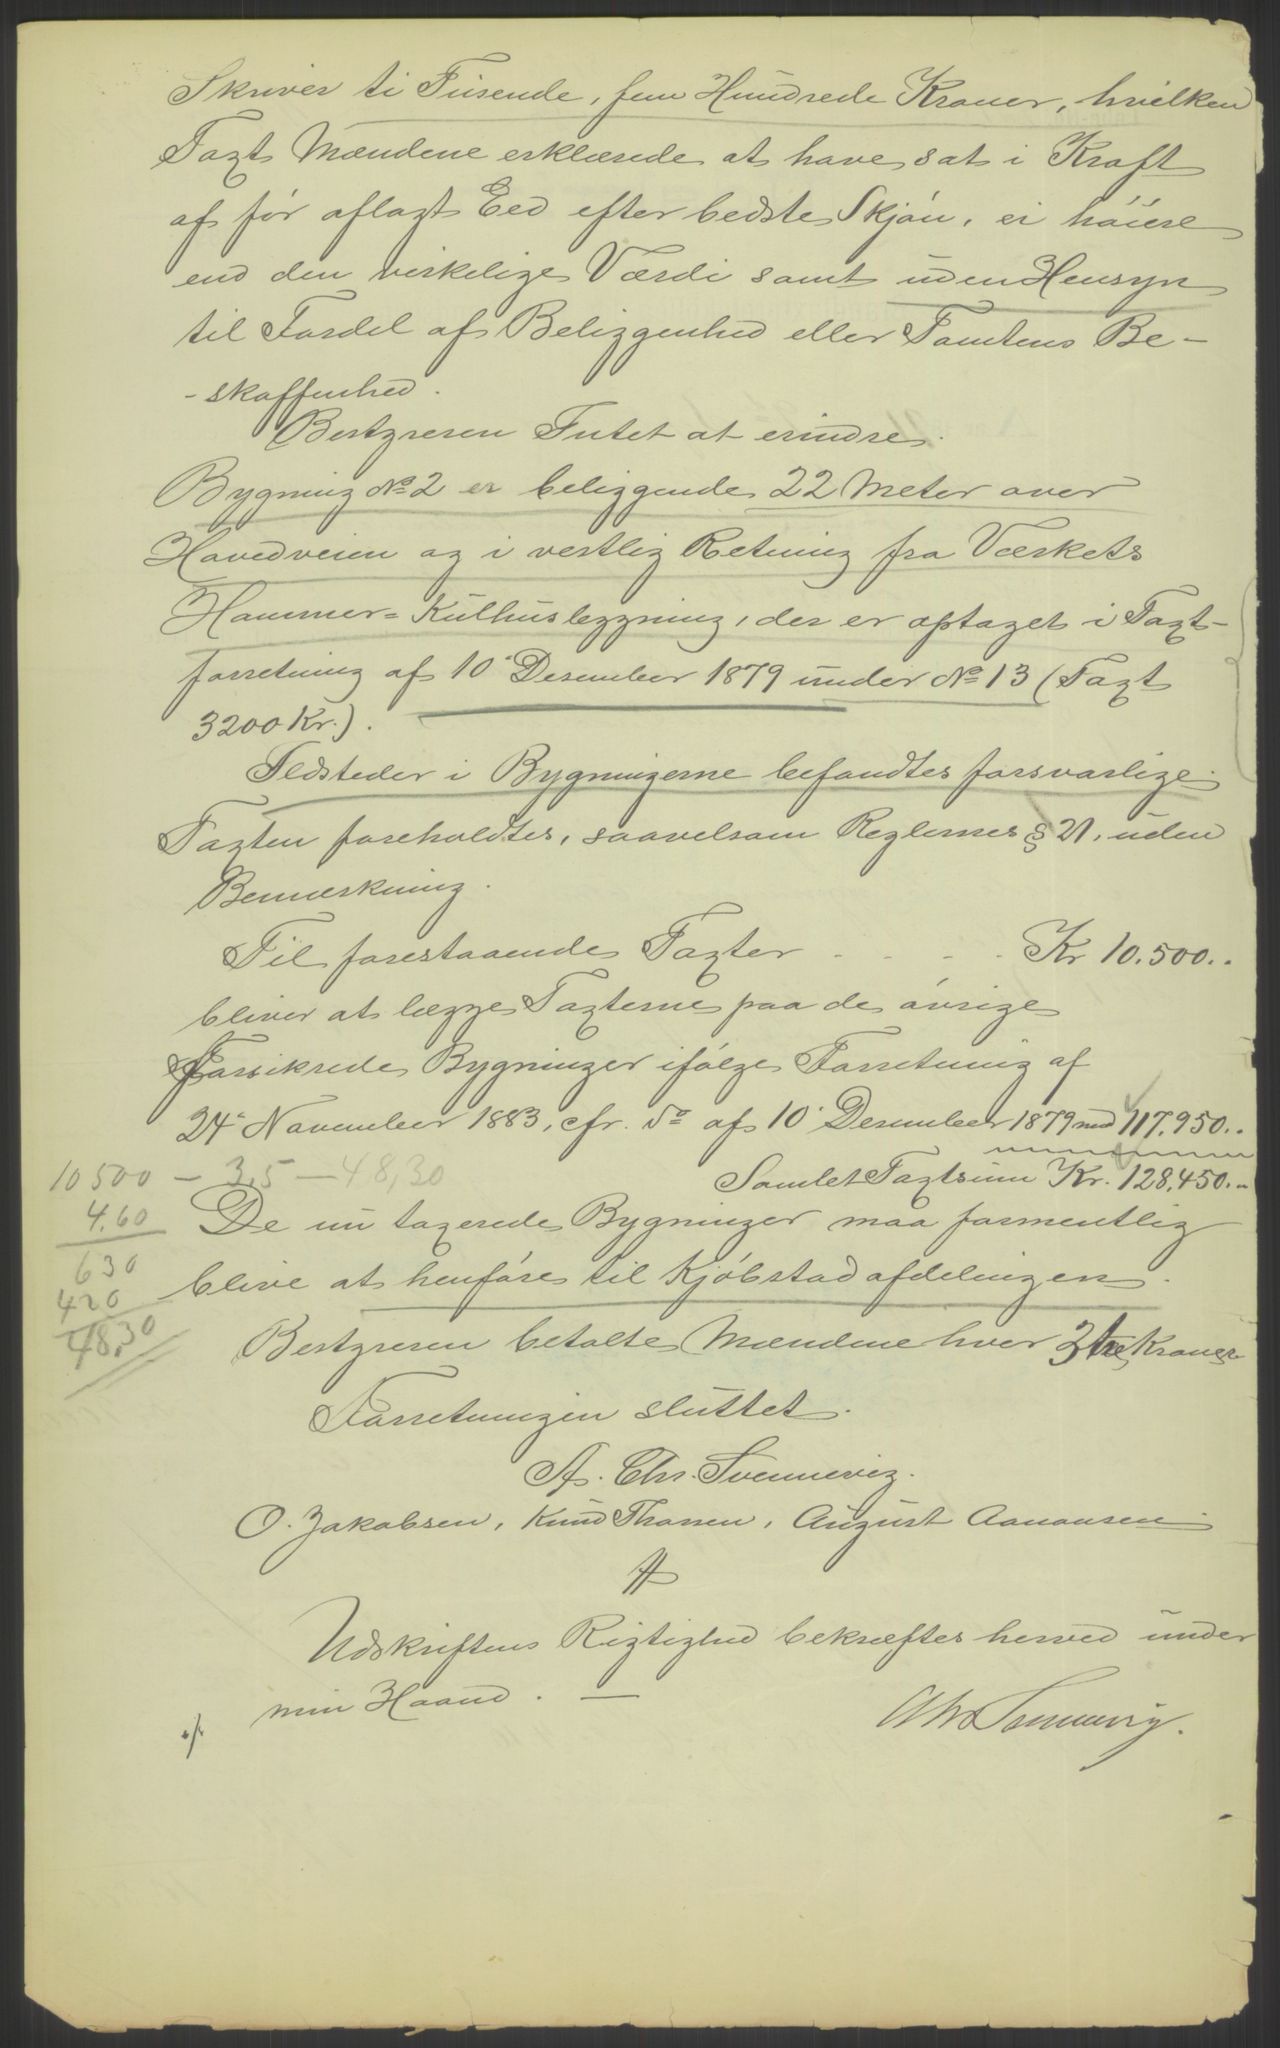 Skriver ti Tusende, fem Hundrede Kroner, hvilken
Taxt Mændene erklærede at have sat i Kraft
af før aflagt Eed efter bedste Skjøn, ei høiere
end den virkelige Værdi samt uden Hensyn
til Fordel af Beliggenhed eller Tomtens Be-
-skaffenhed.
Bestyreren Intet at erindre.
Bygning No 2 er beliggende 22 Meter over
Hovedveien og i vestlig Retning fra Værkets
Hammer= Kulhusbygning, der er optaget i Taxt-
forretning af 10 Desember 1879 under No 13 (Taxt
3200 Kr.).
Ildsteder i Bygningerne befandtes forsvarlige.
Taxten foreholdtes, saavelsom Reglernes § 21, uden
Bemærkning.
Til forestaaende Taxter - - - - Kr 10.500..
bliver at lægge Taxterne paa de øvrige
Forsikrede Bygninger ifølge Forretning af
24 November 1883, cfr. do af 10 Desember 1879 med 117.950..
10500 - 3,5 - 48,30
Samlet Taxtsum Kr. 128.450.-
4.60
De nu taxerede Bygninger maa formentlig
630
blive at henføre til Kjøbstadafdelingen.
420
48,30
Bestyreren betalte Mændene hver 3 tre Kroner
Forretningen sluttet.
A. Chr. Svennevig.
O. Jakobsen, Knud Thorsen, August Aanonsen
Udskriftens Rigtighed bekræftes herved under
min Haand. —
AChrSvennevig.